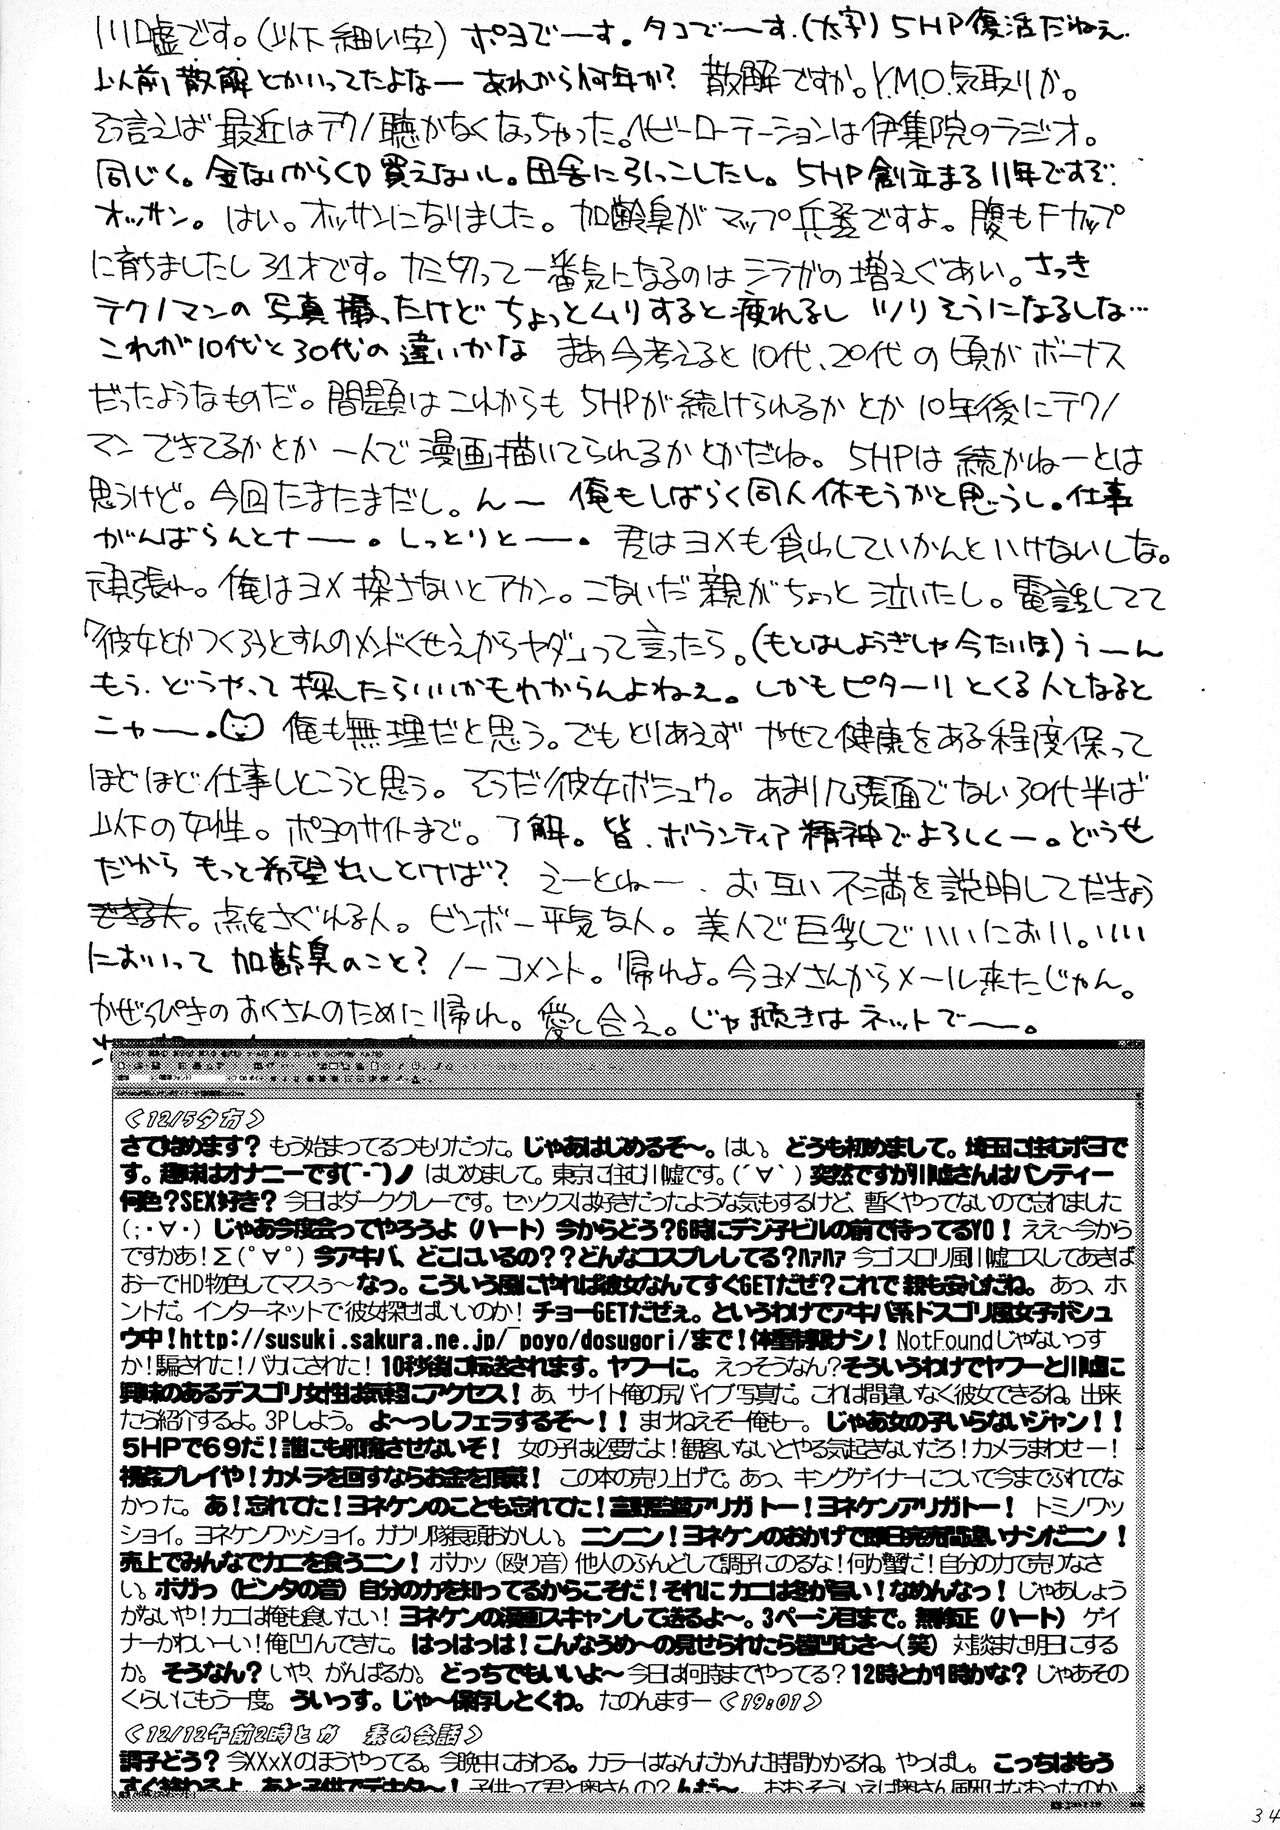 川嘘です。(以下細い字) ポヨでーす。タコでーす.(太字) 5HP復活だねぇ.
以前散解とかいってたよなー あれから何年か? 散解ですか。Y.M.O.気取りか。
そう言えば最近はテクノ聴かなくなっちゃった。ヘビーローテーションは伊集院のラジオ。
同じく。金ないからCD買えないし。田舎に引っこしたし。5HP創立まる11年ですぞ.
オッサン。はい。オッサンになりました。加齢臭がマップ兵器ですよ。腹もFカップ
に育ちましたし31才です。カミ切って一番気になるのはシラガの増えぐあい。さっき
テクノマンの写真撮ったけどちょっとムリすると疲れるし ツりそうになるしな…
これが10代と30代の違いかな まあ今考えると10代、20代の頃がボーナス
だったようなものだ。問題はこれからも5HPが続けられるかとか10年後にテクノ
マンできてるかとか一人で漫画描いてられるかとかだね。5HPは続かねーとは
思うけど。今回たまたまだし。んー 俺もしばらく同人休もうかと思うし。仕事
がんばらんとナー。しっとりとー。君はヨメも食わしていかんといけないしな。
頑張れ。俺はヨメ探さないとアカン。こないだ親がちょっと泣いたし。電話してて
「彼女とかつくろうとすんのメンドくせえからヤダ」って言ったら。(もとはしようぎしゃ今たいほ)うーん
もう.どうやって探したらいいかもわからんよねぇ。しかもピターリとくる人となると
ニャー。 俺も無理だと思う。でもとりあえず やせて健康をある程度保って
ほどほど仕事しとこうと思う。そうだ!彼女ボシュウ。あまり几張面でない30代半ば
以下の女性。ポヨのサイトまで。了解。皆.ボランティア精神でよろしくー。どうせ
だから もっと希望出しとけば? えーとねー.お互い不満を説明してだきょう
できる人。点をさぐれる人。ビンボー平気な人。美人で巨乳しでいいにおい。いい
においって加齢臭のこと? ノーコメント。帰れよ。今ヨメさんからメール来たじゃん。
かぜっぴきのおくさんのために帰れ。愛し合え。じゃ続きはネットでー。
<12/5夕方>
さて始めます? もう始まってるつもりだった。じゃあはじめるぞ〜。はい。どうも初めまして。埼玉に住むポヨで
す。趣味はオナニーです(ˉ-ˉ)ノ はじめまして。東京に住む川嘘です。(´∀`) 突然ですが川嘘さんはパンティー
何色?SEX好き? 今日はダークグレーです。セックスは好きだったような気もするけど、暫くやってないので忘れました
(;・∀・) じゃあ今度会ってやろうよ(ハート)今からどう?6時にデジ子ビルの前で待ってるYO! ええ〜今から
ですかあ!Σ(゚∀゚) 今アキバ、どこにいるの??どんなコスプレしてる?ハァハァ 今ゴスロリ風川嘘コスしてあきば
おーでHD物色してマスぅ〜 なっ。こういう風にやれば彼女なんてすぐGETだぜ?これで親も安心だね。あっ、ホ
ントだ。インターネットで彼女探せばいいのか! チョーGETだぜぇ。というわけでアキバ系ドスゴリ風女子ボシュ
ウ中!http://susuki.sakura.ne.jp/~poyo/dosugori/まで!体重制限ナシ! NotFoundじゃないっす
か!騙された!バカにされた! 10秒後に転送されます。ヤフーに。えっそうなん?そういうわけでヤフーと川嘘に
興味のあるデスゴリ女性は気軽にアクセス! あ、サイト俺の尻バイブ写真だ。これは間違いなく彼女できるね。出来
たら紹介するよ。3Pしよう。よ〜っしフェラするぞ〜!! まけねえぞー俺もー。じゃあ女の子いらないジャン!!
5HPで69だ!誰にも邪魔させないぞ! 女の子は必要だよ!観客いないとやる気起きないだろ!カメラまわせー!
視姦プレイや!カメラを回すならお金を頂戴! この本の売り上げで。あっ、キングゲイナーについて今までふれてな
かった。あ!忘れてた!ヨネケンのことも忘れてた!富野監督アリガトー!ヨネケンアリガトー! トミノワッ
ショイ。ヨネケンワッショイ。ガウリ隊長頭おかしい。ニンニン!ヨネケンのおかげで即日完売間違いナシだニン!
売上でみんなでカニを食うニン! ボカッ(殴り音)他人のふんどしで調子にのるな!何が蟹だ!自分の力で売りなさ
い。ボガっ(ビンタの音)自分の力を知ってるからこそだ!それにカニは冬が旨い!なめんなっ! じゃあしょう
がないや!カニは俺も食いたい! ヨネケンの漫画スキャンして送るよ〜。3ページ目まで。無修正(ハート) ゲイ
ナーかわいーい!俺凹んできた。はっはっは!こんなうめ〜の見せられたら皆凹むさ〜(笑) 対談また明日にする
か。そうなん? いや、がんばるか。どっちでもいいよ〜 今日は何時までやってる?12時とか1時かな? じゃあその
くらいにもう一度。ういっす。じゃ〜保存しとくわ。たのんますー<19:01>
<12/12午前2時とか 素の会話>
調子どう? 今XXxXのほうやってる。今晩中におわる。カラーはなんだかんだ時間かかるね。やっぱし。こっちはもう
すぐ終わるよ。あと子供でデキタ〜! 子供って君と奥さんの?んだ〜 おおそういえば奥さん風邪はなおったのか
34